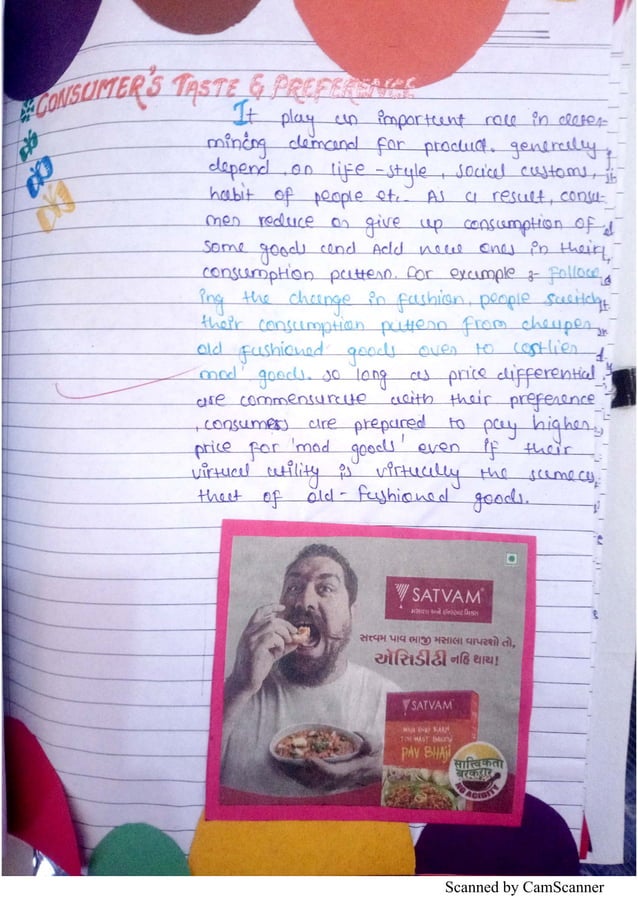 CONSUMER'S TASTE & PREFERENCE
It play an important role in deter-
mining demand for product. generally
depend on life-style, social customs,
habit of people etc. As a result, consu-
mer reduce or give up consumption of
some goods and Add new ones in their
consumption pattern. For example :- Follow
ing the change in fashion, people switch
their consumption pattern from cheaper
old fashioned goods over to costlier
'mod' goods. so long as price differential
are commensurate with their preference
, consumers are prepared to pay higher
price for 'mod goods' even if their
virtual utility is virtually the same as
that of old-fashioned goods.
SATVAM
મસાલા અને ઇન્સ્ટન્ટ મિક્સ
સત્વમ પાવ ભાજી મસાલા વાપરશો તો,
એસિડીટી નહિ થાય!
SATVAM
PAV BHAJI
सात्विकता
बरकरार
NO ACIDITY
Scanned by CamScanner